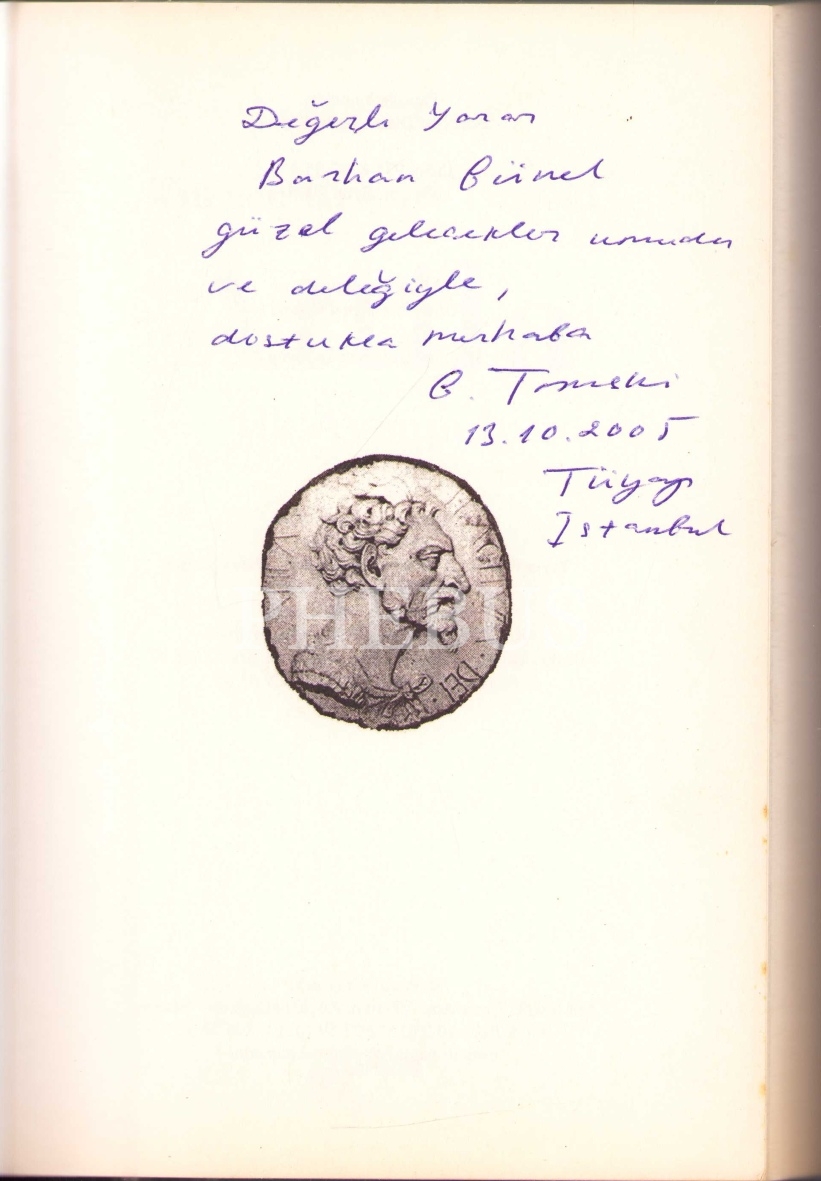 Değerli Yazar
Burhan Günel
güzel gelecekler umudu
ve dileğiyle,
dostlukla merhaba
G.
13.10.2005
Tüyap
İstanbul
PHEBUS
DEI